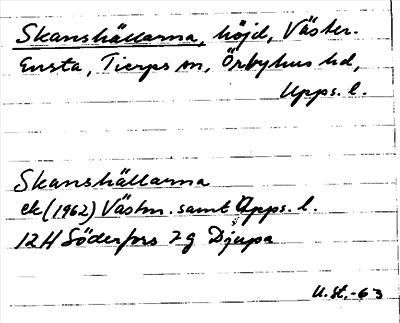 Skanshällarna, höjd, Väster-
Ensta, Tierps sn, Örbyhus hd,
Upps. l.
Skanshällarna
ek (1962) Västm. samt Upps. l.
12H Söderfors 7g Djupa
U.St.-63